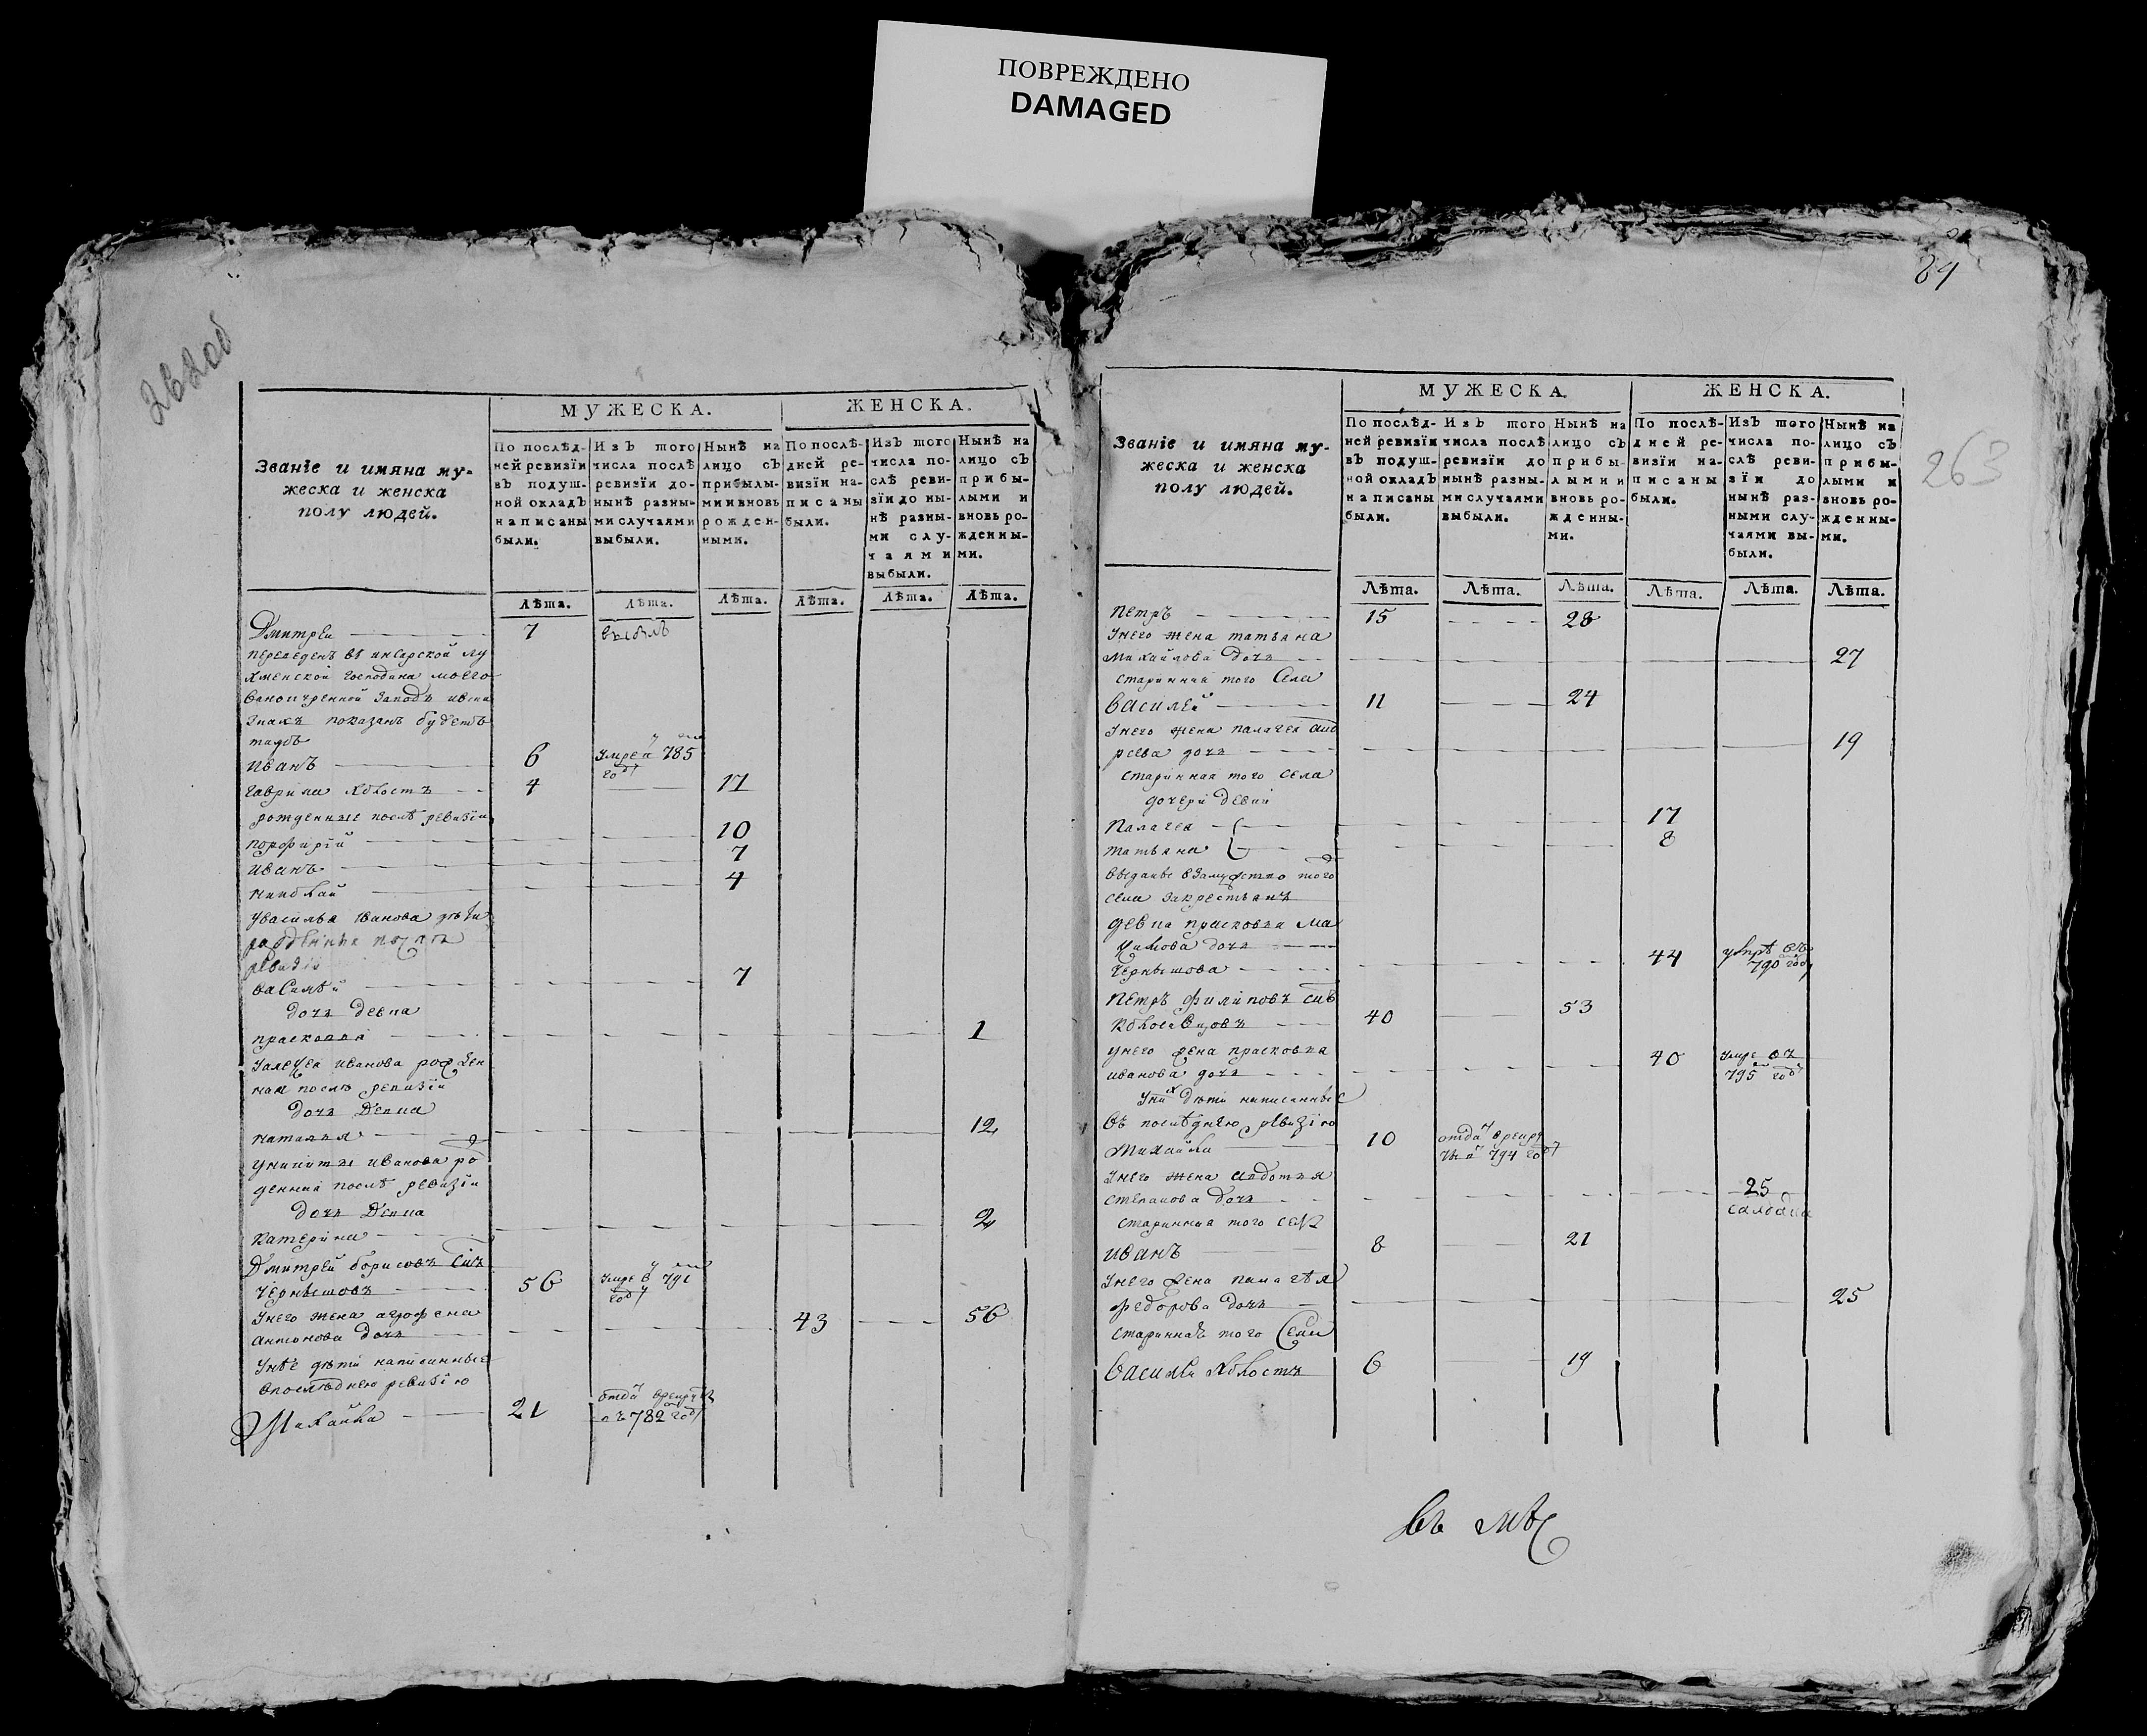 ПОВРЕЖДЕНО
DAMAGED
262об
МУЖЕСКА.
ЖЕНСКА.
Званїе и имяна му-
жеска и женска
полу людей.
По послѣд-
ней ревизїи
въ подуш-
ной окладъ
написаны
были.
Изъ того
числа послѣ
ревизїи до-
нынѣ разны-
ми случаями
выбыли.
Нынѣ на
лицо съ
прибылы-
ми и вновь
рожден-
ными.
По послѣ-
дней ре-
визїи на-
писаны
были.
Изъ того
числа по-
слѣ реви-
зїи до ны-
нѣ разны-
ми слу-
чаями
выбыли.
Нынѣ на
лицо съ
прибы-
лыми и
вновь ро-
жденны-
ми.
Лѣта. Лѣта. Лѣта. Лѣта. Лѣта. Лѣта.
Дмитреи 7
переведенъ въ инсарской
господина моего
показанъ будетъ
тамъ
иванъ 6 785
году
гаврила 4 17
рожденные послѣ ревизїи
порфирїй 10
иванъ 7
николай 4
увасилья иванова дѣти
василѣй 7
дочь девка
прасковья 1
иванова рожден
ная послѣ ревизїи
дочь девка
наталья 12
уникиты иванова ро
денная послѣ ревизїи
дочь девка
катерина 2
Дмитрей борисовъ сынъ
чернышовъ 56 791
году
унего жена агрофена
антонова дочь 43 56
унѣе дѣти написанные
впослѣднею ревизїю
Михайла 21 отдан
782 году
89
263
МУЖЕСКА.
ЖЕНСКА.
Званїе и имяна му-
жеска и женска
полу людей.
По послѣд-
ней ревизїи
въ подуш-
ной окладъ
написаны
были.
Изъ того
числа послѣ
ревизїи до
нынѣ разны-
ми случаями
выбыли.
Нынѣ на
лицо съ
прибы-
лыми и
вновь ро-
жденны-
ми.
По послѣ-
дней ре-
визїи на-
писаны
были.
Изъ того
числа по-
слѣ реви-
зїи до
нынѣ раз-
ными слу-
чаями вы-
были.
Нынѣ на
лицо съ
прибы-
лыми и
вновь ро-
жденны-
ми.
Лѣта. Лѣта. Лѣта. Лѣта. Лѣта. Лѣта.
петръ 15 28
унего жена татьяна
михайлова дочь 27
старинная того села
василей 11 24
унего жена палагея анд
реева дочь 19
старинная того села
дочери девки
палагея 17
татьяна 8
выданы взамужство того
села закрестьянъ
девка прасковья
дочь
чернышова 44 790 году
петръ филиповъ сынъ
40 53
унего жена прасковья
иванова дочь 40 795 году
уних дѣти написанные
въ послѣднею ревизїю
михайла 10 отдан 794 году
унего жена авдотья
степанова дочь 25
старинная того села
иванъ 8 21
унего жена палагѣя
федорова дочь 25
старинная того села
василей 6 19